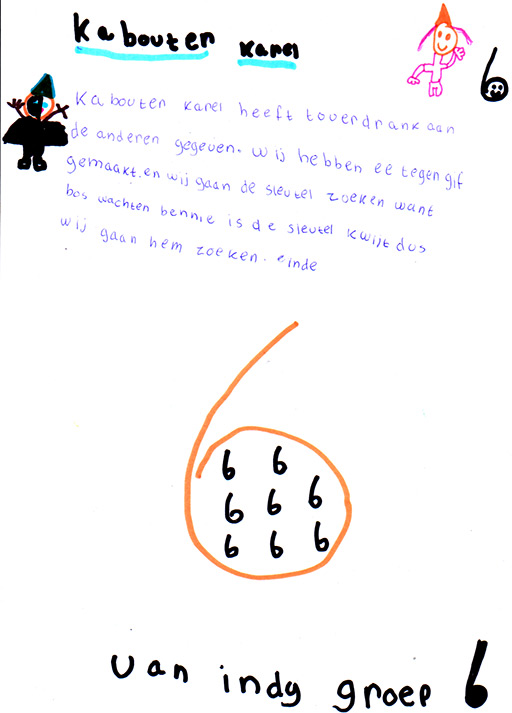 Kabouter Karel
6
Kabouter karel heeft toverdrank aan
de anderen gegeven. wij hebben ee tegengif
gemaakt. en wij gaan de sleutel zoeken want
bos wachten bennie is de sleutel kwijt dus
wij gaan hem zoeken. einde
6
6 6
6 6 6
6 6 6
van indy groep 6